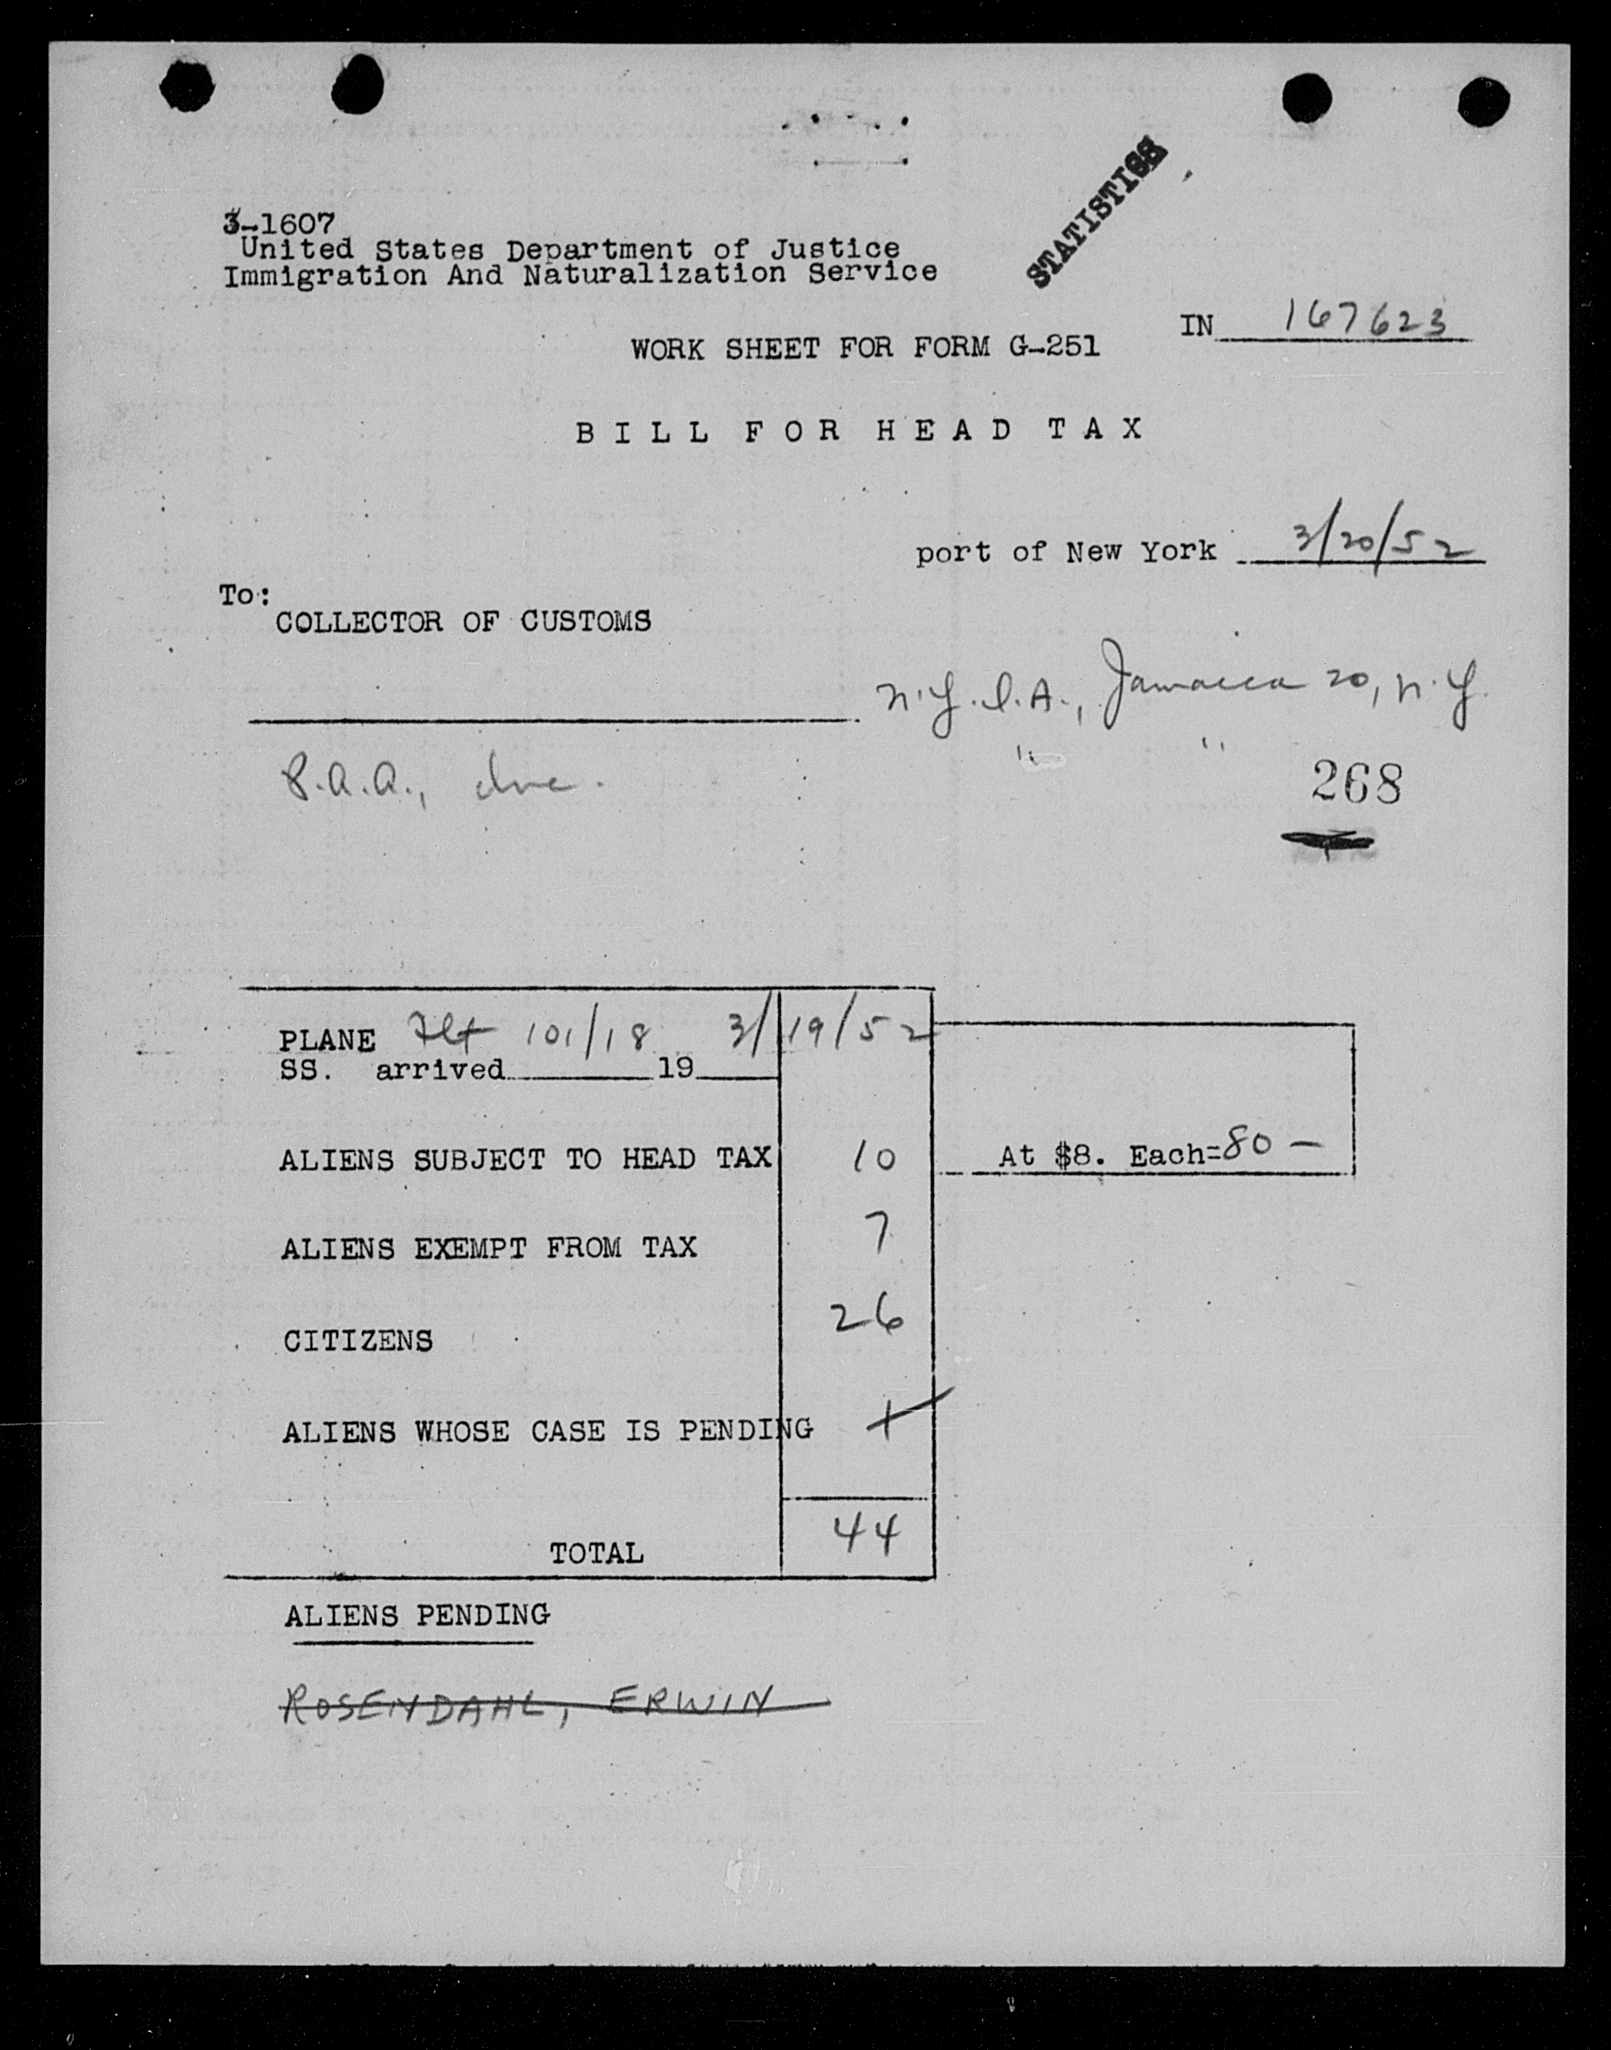 STATISTICS
3-1607
United States Department of Justice
Immigration And Naturalization Service
IN 167623
WORK SHEET FOR FORM G-251
BILL FOR HEAD TAX
port of New York 3/20/52
To:
COLLECTOR OF CUSTOMS
N.Y.I.A., Jamaica 20, N.Y.
" "
P.A.A., Inc.
268
PLANE Flt 101/18 3/19/52
SS. arrived 19
ALIENS SUBJECT TO HEAD TAX 10 At $8. Each=80 —
ALIENS EXEMPT FROM TAX 7
CITIZENS 26
ALIENS WHOSE CASE IS PENDING 1
TOTAL 44
ALIENS PENDING
ROSENDAHL, ERWIN